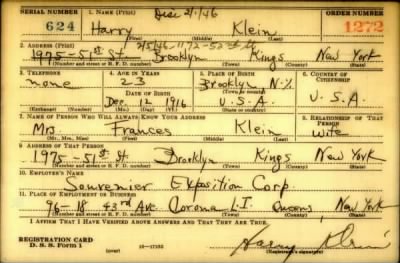 SERIAL NUMBER 1. NAME (Print) Disc 2/1/46 ORDER NUMBER
624 Harry Klein 1272
(First) (Middle) (Last)
2. ADDRESS (Print) 2/5/46-1172-52nd St
1975-51st St. Brooklyn Kings New York
(Number and street or R. F. D. number) (Town) (County) (State)
3. TELEPHONE 4. AGE IN YEARS 5. PLACE OF BIRTH 6. COUNTRY OF CITIZENSHIP
none 23 Brooklyn N.Y.
DATE OF BIRTH (Town or county)
Dec. 12 1916 U.S.A. U.S.A.
(Exchange) (Number) (Mo.) (Day) (Yr.) (State or country)
7. NAME OF PERSON WHO WILL ALWAYS KNOW YOUR ADDRESS 8. RELATIONSHIP OF THAT PERSON
Mrs. Frances Klein wife
(Mr., Mrs., Miss) (First) (Middle) (Last)
9. ADDRESS OF THAT PERSON
1975-51st St. Brooklyn Kings New York
(Number and street or R. F. D. number) (Town) (County) (State)
10. EMPLOYER'S NAME
Souvenier Exposition Corp.
11. PLACE OF EMPLOYMENT OR BUSINESS
96-18 43rd Ave Corona L.I. Queens, New York
(Number and street or R. F. D. number) (Town) (County) (State)
I AFFIRM THAT I HAVE VERIFIED ABOVE ANSWERS AND THAT THEY ARE TRUE.
REGISTRATION CARD
D. S. S. Form 1 16-17105 Harry Klein
(Registrant's signature)